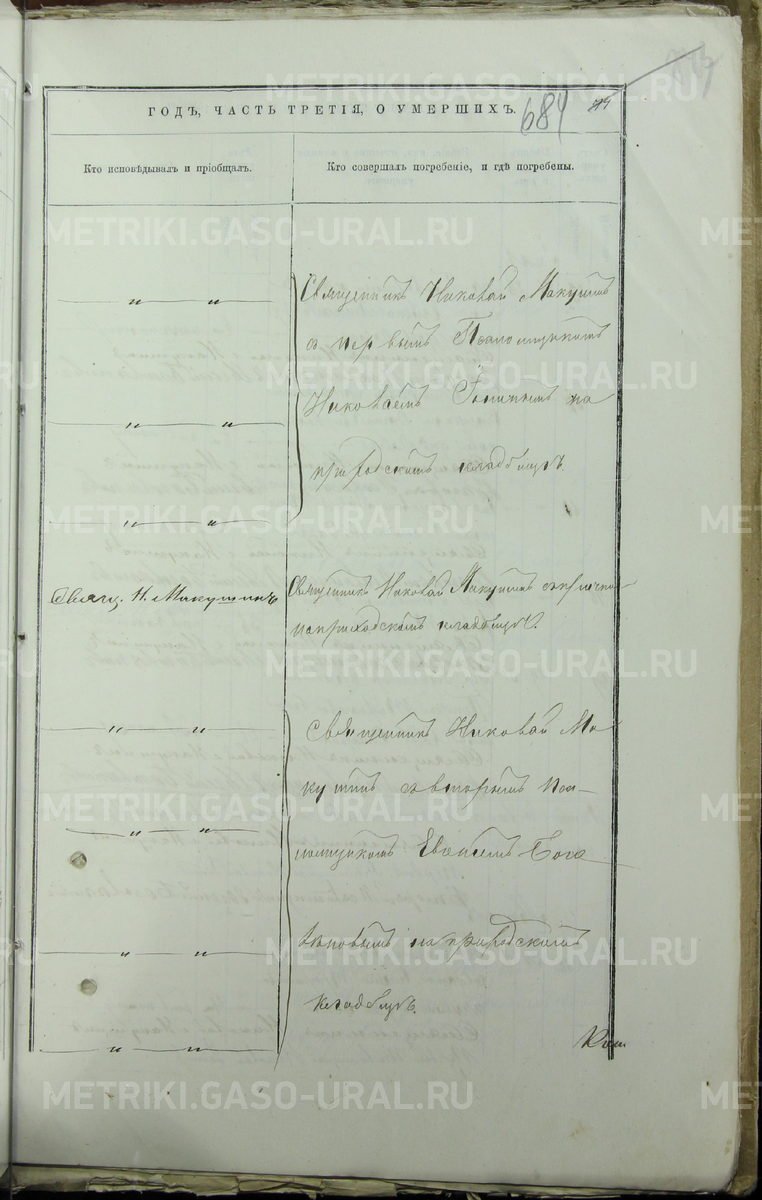 ГОДЪ, ЧАСТЬ ТРЕТІЯ, О УМЕРШИХЪ.
684
Кто исповѣдывалъ и пріобщалъ.
Кто совершалъ погребеніе, и гдѣ погребены.
Священникъ Николай Макушинъ
съ первымъ Псаломщикомъ
Николаемъ на
приходскомъ кладбищѣ.
Свящ. Н. Макушинъ
Священникъ Николай Макушинъ съ причтомъ
на приходскомъ кладбищѣ.
Священникъ Николай Ма
кушинъ съ вторымъ Пса
ломщикомъ Бого
на приходскомъ
кладбищѣ.
METRIKI.GASO-URAL.RU